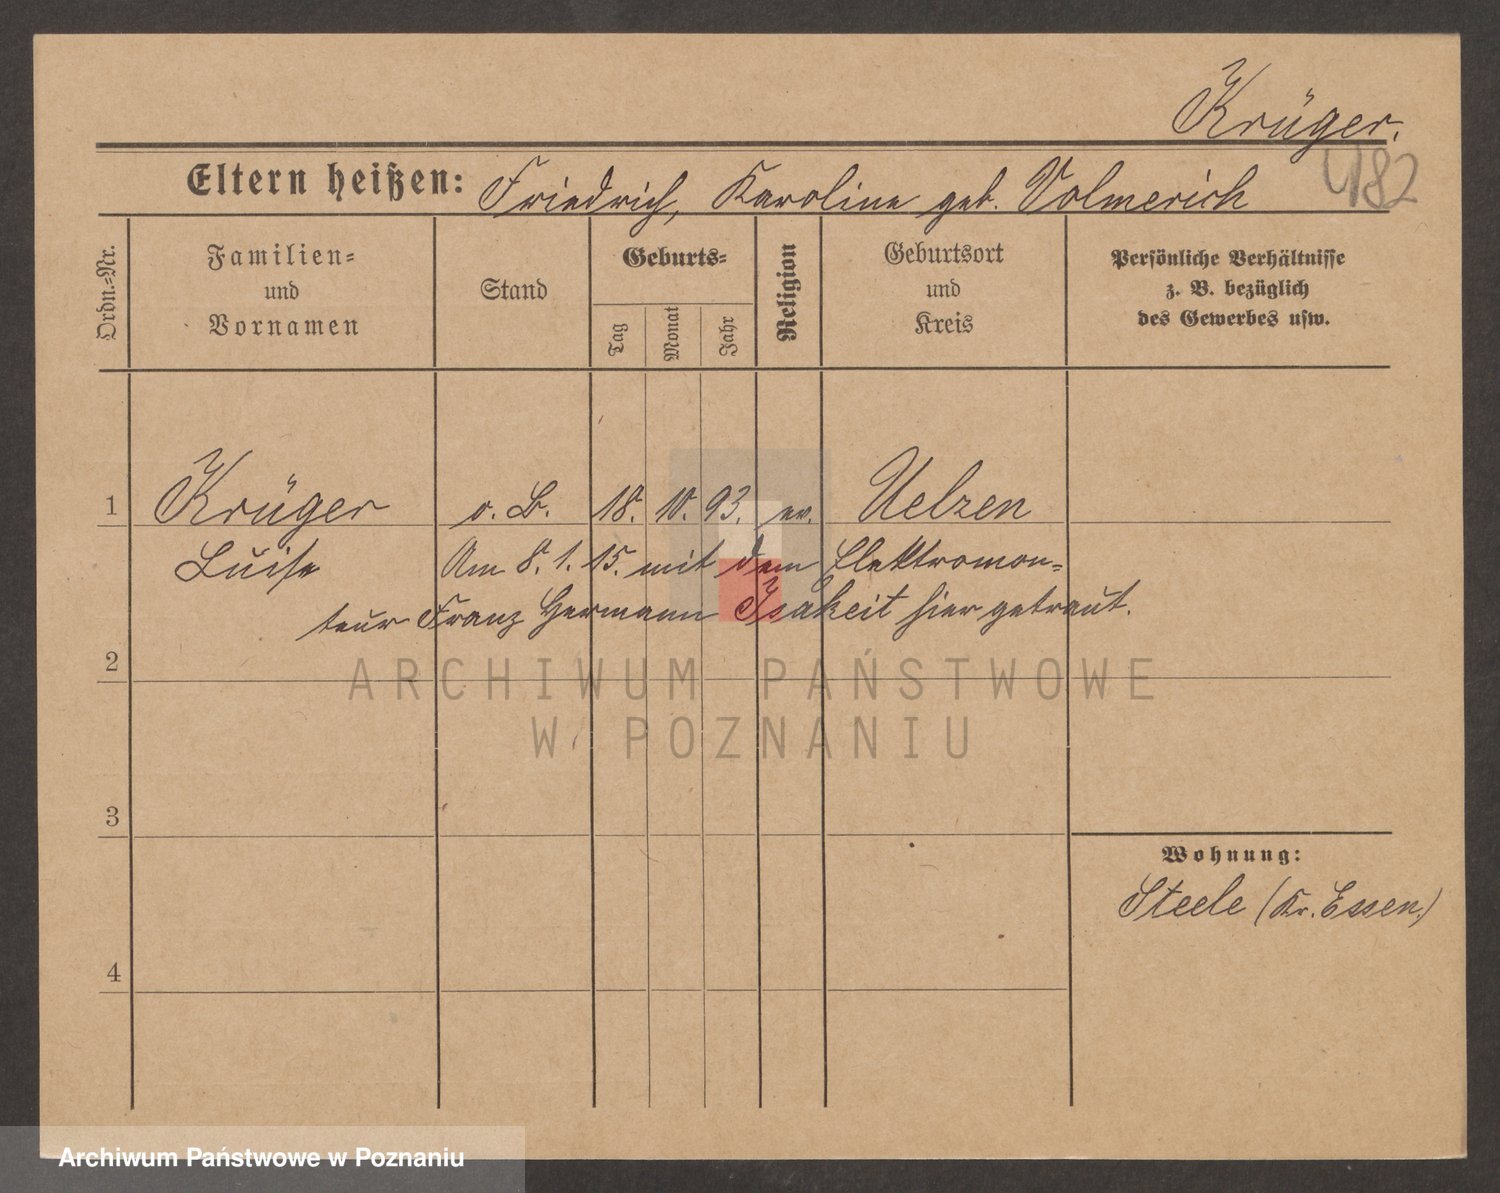 Krüger.
482
Eltern heißen: Friedrich, Karoline geb. Volmerich
Ordn.-Nr.
Familien-
und
Vornamen
Stand
Geburts-
Tag
Monat
Jahr
Religion
Geburtsort
und
Kreis
Persönliche Verhältnisse
z. B. bezüglich
des Gewerbes usw.
1 Krüger o. B. 18. 10. 93. ev. Uelzen
Luise Am 8. 1. 15. mit dem Elektromon-
teur Franz Hermann Isakeit hier getraut.
2
ARCHIWUM PAŃSTWOWE
W POZNANIU
3
Wohnung:
Steele (Kr. Essen.)
4
Archiwum Państwowe w Poznaniu